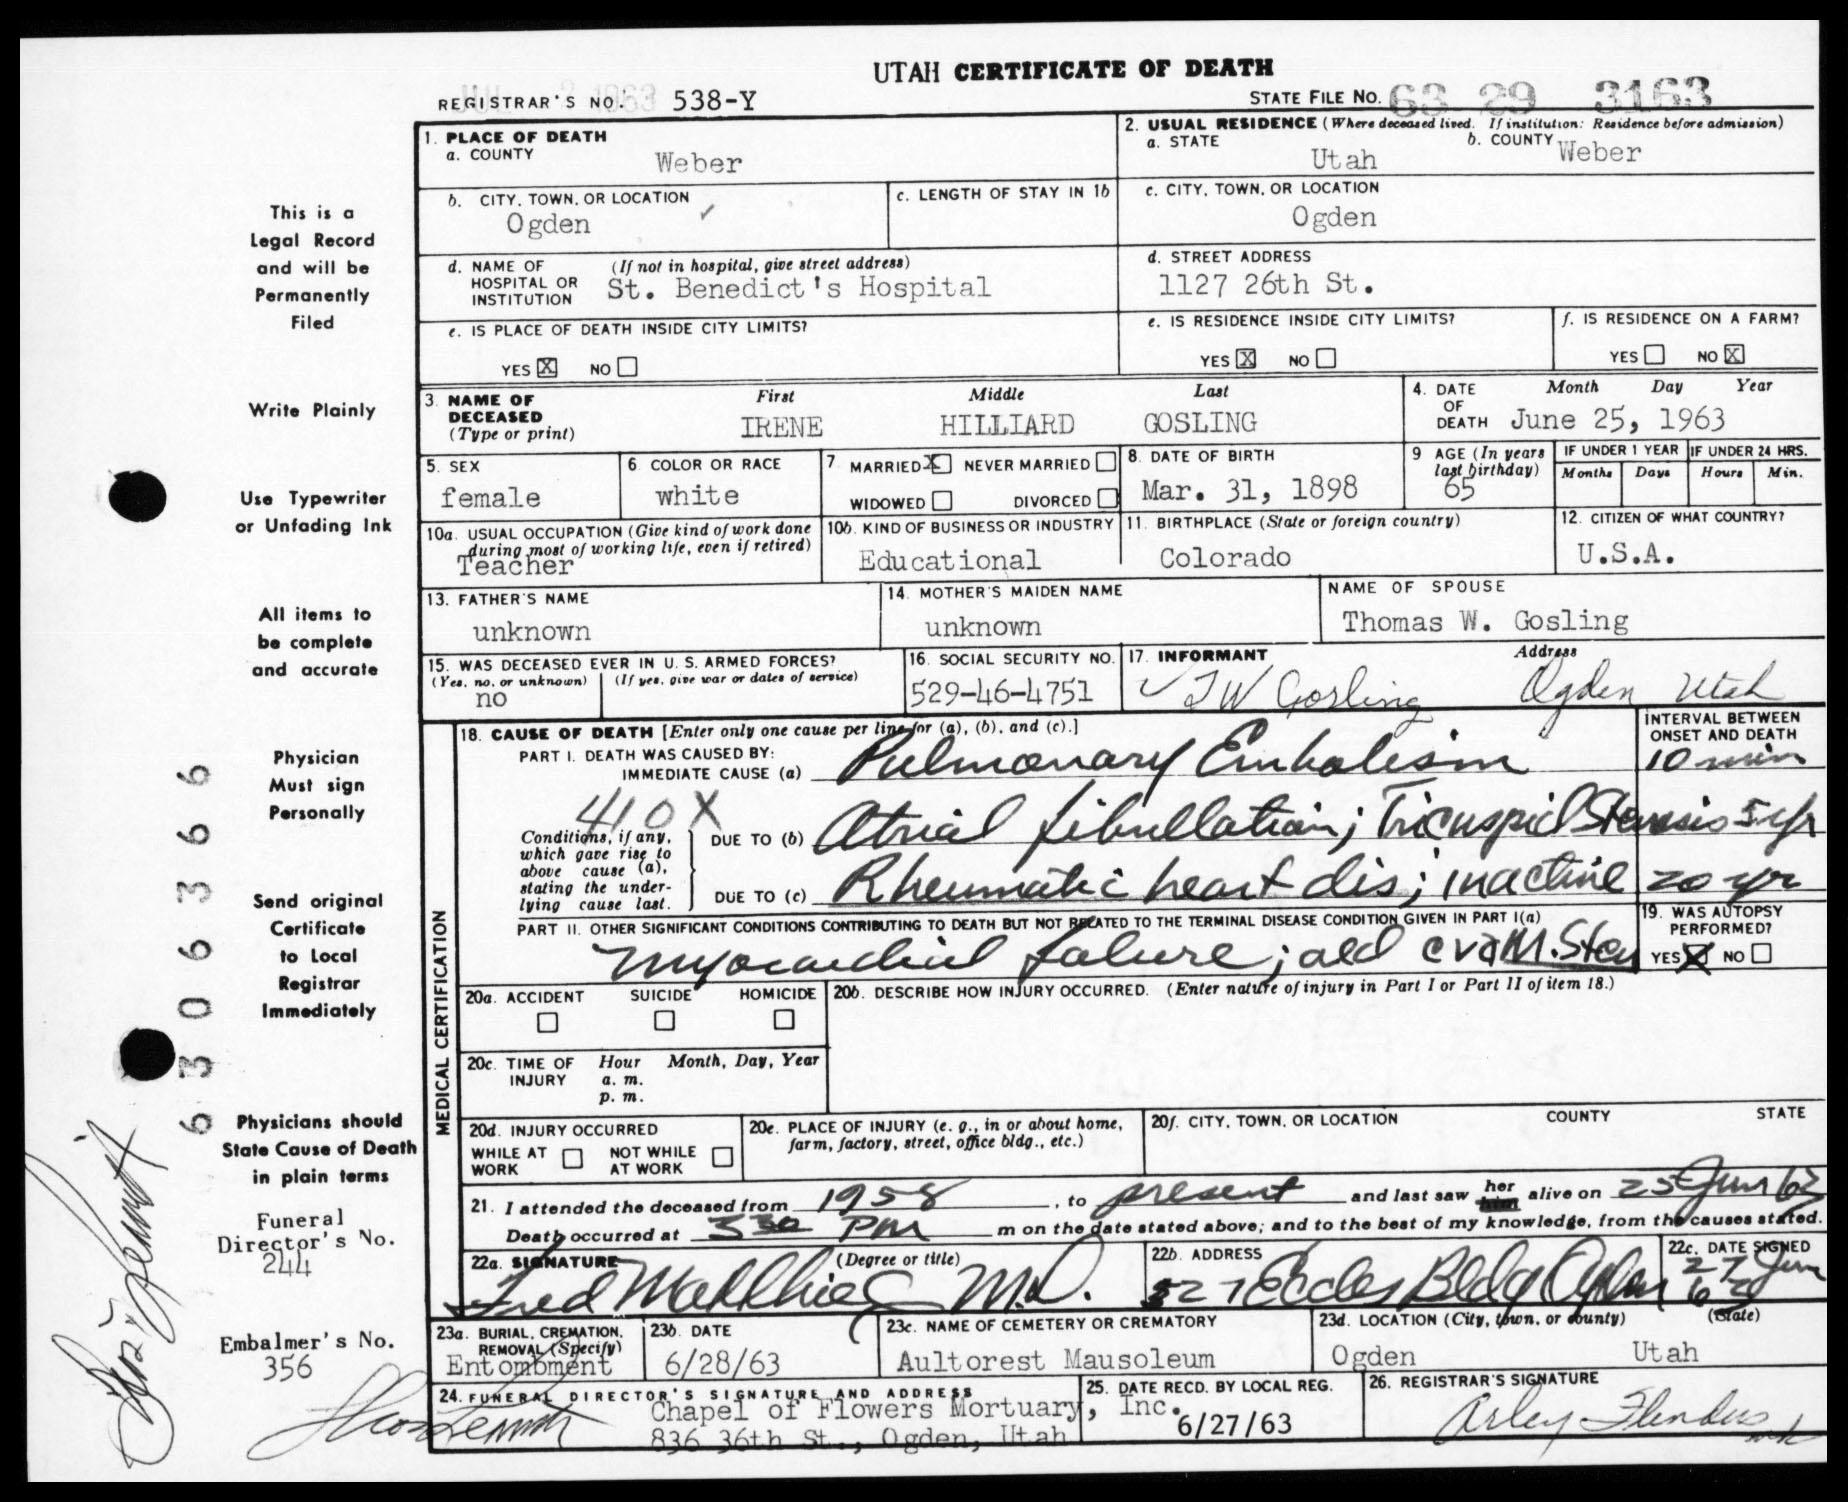 UTAH CERTIFICATE OF DEATH
REGISTRAR'S NO. 538-Y
STATE FILE NO. 63 29 3163
1. PLACE OF DEATH
a. COUNTY
Weber
2. USUAL RESIDENCE (Where deceased lived. If institution: Residence before admission)
a. STATE
Utah
b. COUNTY
Weber
b. CITY, TOWN, OR LOCATION
Ogden
c. LENGTH OF STAY IN 1b
c. CITY, TOWN, OR LOCATION
Ogden
d. NAME OF HOSPITAL OR INSTITUTION
(If not in hospital, give street address)
St. Benedict's Hospital
d. STREET ADDRESS
1127 26th St.
e. IS PLACE OF DEATH INSIDE CITY LIMITS?
YES X NO
e. IS RESIDENCE INSIDE CITY LIMITS?
YES X NO
f. IS RESIDENCE ON A FARM?
YES NO X
3. NAME OF DECEASED
(Type or print)
First Middle Last
IRENE HILLIARD GOSLING
4. DATE OF DEATH
Month Day Year
June 25, 1963
5. SEX
female
6. COLOR OR RACE
white
7. MARRIED X NEVER MARRIED
WIDOWED DIVORCED
8. DATE OF BIRTH
Mar. 31, 1898
9 AGE (In years last birthday)
65
IF UNDER 1 YEAR
Months Days
IF UNDER 24 HRS.
Hours Min.
10a. USUAL OCCUPATION (Give kind of work done during most of working life, even if retired)
Teacher
10b. KIND OF BUSINESS OR INDUSTRY
Educational
11. BIRTHPLACE (State or foreign country)
Colorado
12. CITIZEN OF WHAT COUNTRY?
U.S.A.
13. FATHER'S NAME
unknown
14. MOTHER'S MAIDEN NAME
unknown
NAME OF SPOUSE
Thomas W. Gosling
15. WAS DECEASED EVER IN U.S. ARMED FORCES?
(Yes, no, or unknown) (If yes, give war or dates of service)
no
16. SOCIAL SECURITY NO.
529-46-4751
17. INFORMANT Address
TW Gosling Ogden Utah
MEDICAL CERTIFICATION
18. CAUSE OF DEATH [Enter only one cause per line for (a), (b), and (c).]
INTERVAL BETWEEN ONSET AND DEATH
PART I. DEATH WAS CAUSED BY:
IMMEDIATE CAUSE (a) Pulmonary Embolism 10 min
410X
Conditions, if any, which gave rise to above cause (a), stating the underlying cause last.
DUE TO (b) Atrial fibrillation; Tricuspid Stenosis 5 yr
DUE TO (c) Rheumatic heart dis; inactive 20 yr
PART II. OTHER SIGNIFICANT CONDITIONS CONTRIBUTING TO DEATH BUT NOT RELATED TO THE TERMINAL DISEASE CONDITION GIVEN IN PART I(a)
myocardial failure; old cva M. Sten
19. WAS AUTOPSY PERFORMED?
YES X NO
20a. ACCIDENT SUICIDE HOMICIDE
20b. DESCRIBE HOW INJURY OCCURRED. (Enter nature of injury in Part I or Part II of item 18.)
20c. TIME OF INJURY
Hour Month, Day, Year
a. m.
p. m.
20d. INJURY OCCURRED
WHILE AT WORK NOT WHILE AT WORK
20e. PLACE OF INJURY (e. g., in or about home, farm, factory, street, office bldg., etc.)
20f. CITY, TOWN, OR LOCATION COUNTY STATE
21. I attended the deceased from 1958, to present and last saw her him alive on 25 Jun 63
Death occurred at 530 PM m on the date stated above; and to the best of my knowledge, from the causes stated.
22a. SIGNATURE (Degree or title)
Fred Matthies M.D.
22b. ADDRESS
527 Eccles Bldg Ogden
22c. DATE SIGNED
27 Jun 63
23a. BURIAL, CREMATION, REMOVAL (Specify)
Entombment
23b. DATE
6/28/63
23c. NAME OF CEMETERY OR CREMATORY
Aultorest Mausoleum
23d. LOCATION (City, town, or county) (State)
Ogden Utah
24. FUNERAL DIRECTOR'S SIGNATURE AND ADDRESS
Chapel of Flowers Mortuary, Inc.
836 36th St., Ogden, Utah
25. DATE RECD. BY LOCAL REG.
6/27/63
26. REGISTRAR'S SIGNATURE
Arley Flinders
This is a
Legal Record
and will be
Permanently
Filed
Write Plainly
Use Typewriter
or Unfading Ink
All items to
be complete
and accurate
Physician
Must sign
Personally
Send original
Certificate
to Local
Registrar
Immediately
Physicians should
State Cause of Death
in plain terms
Funeral
Director's No.
244
Embalmer's No.
356
63063366